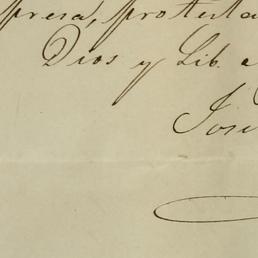 presa, protesta
Dios y Lib. e
José